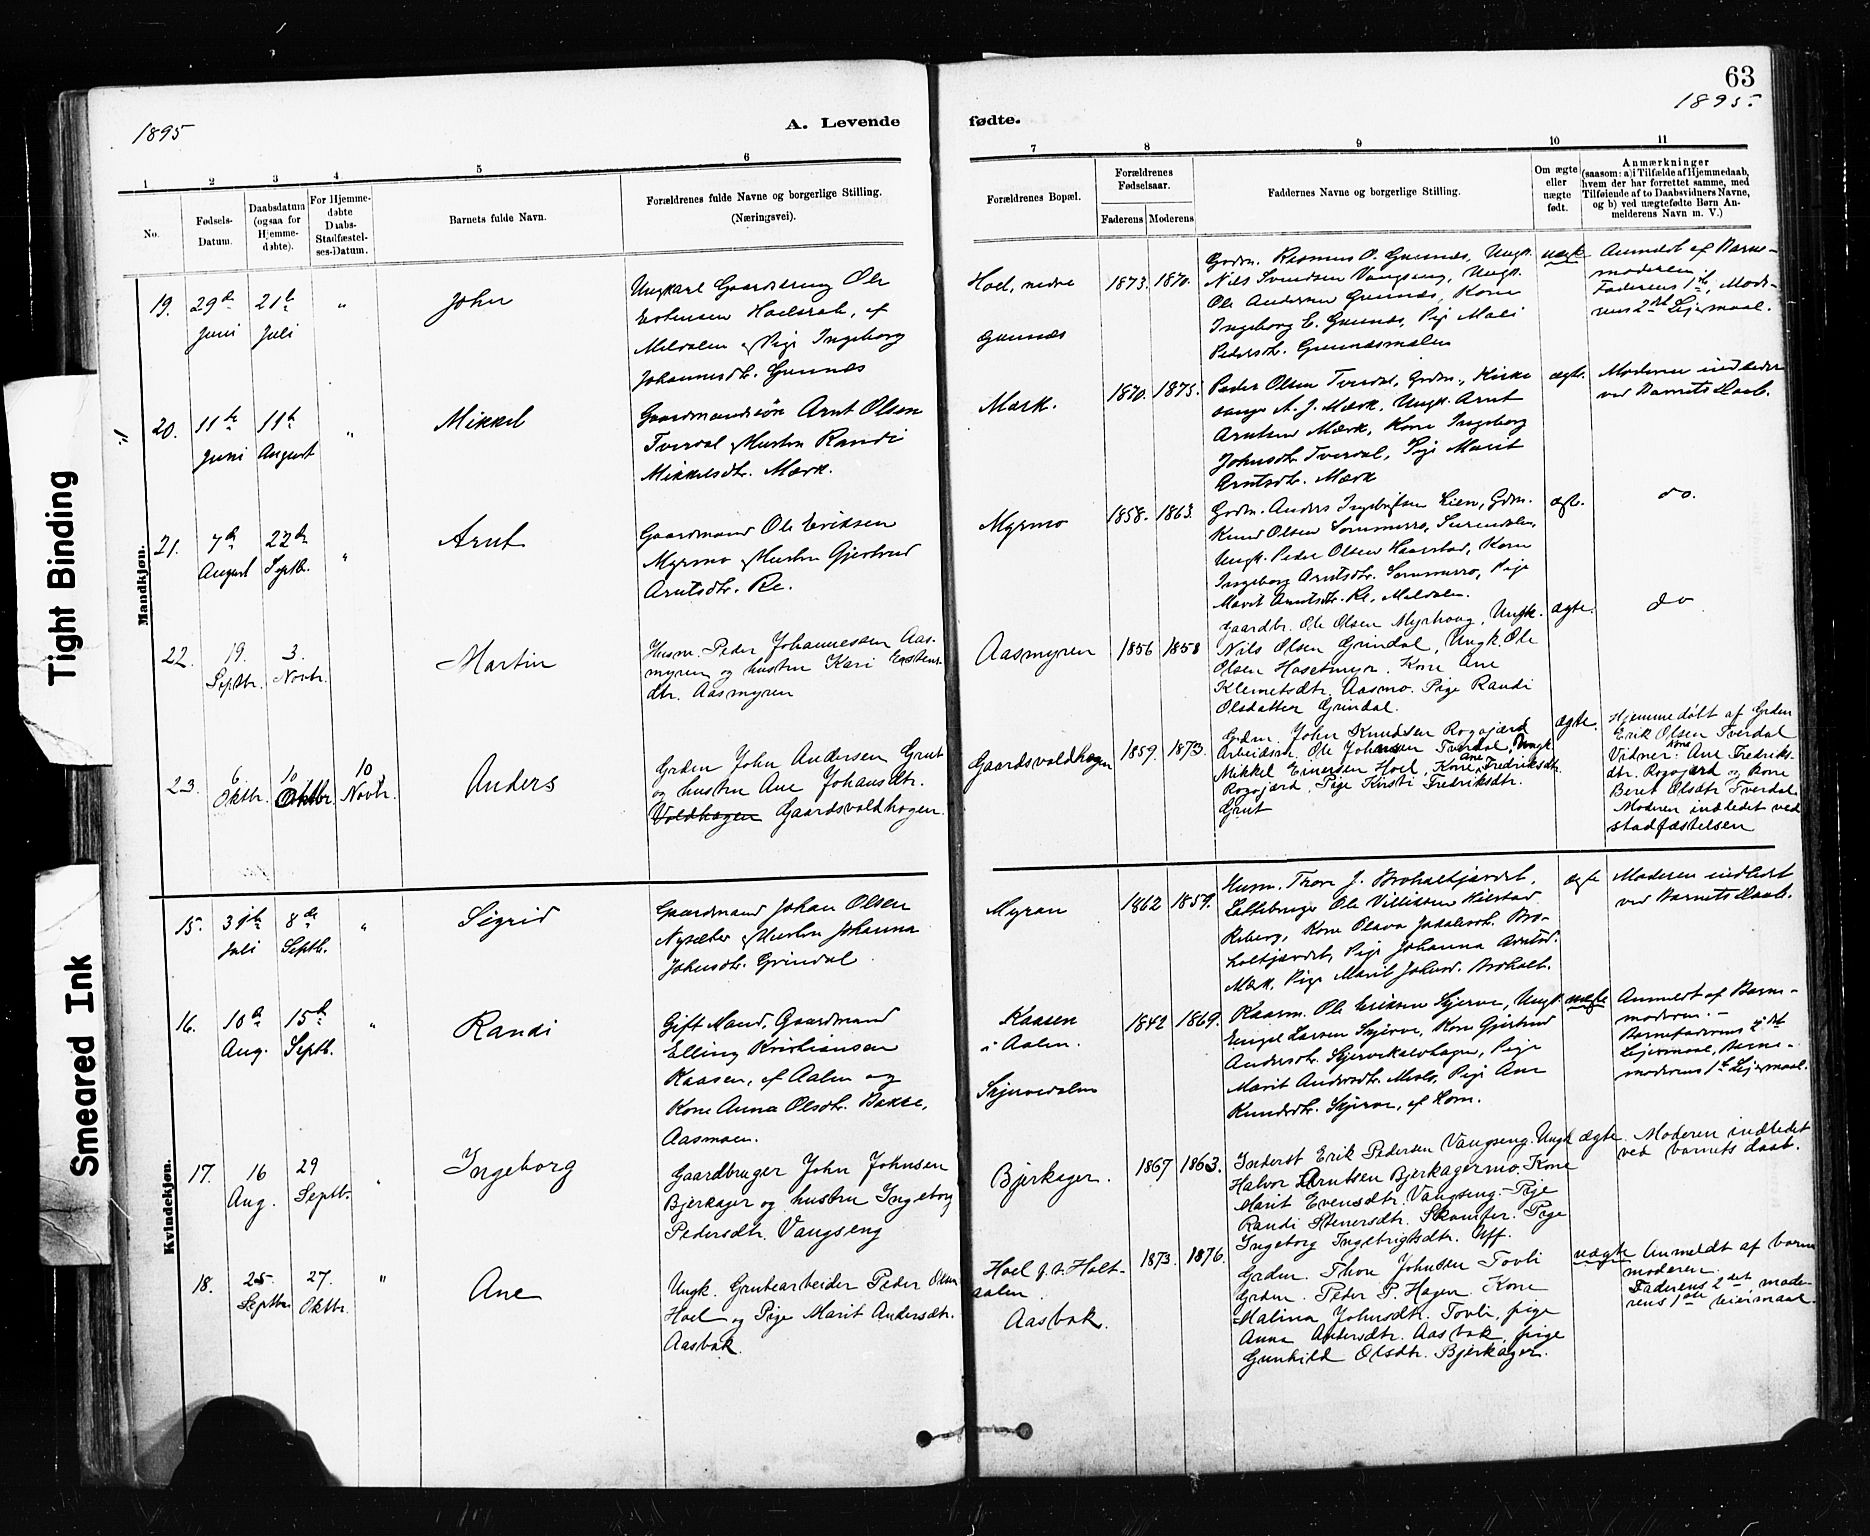 63
1895
1895.
A. Levende
fødte.
1
2
3
4
5
6
7
8
9
10
11
No.
Fødsels-
Datum.
Daabsdatum
(ogsaa for
Hjemme-
døbte).
For Hjemme-
døbte
Daabs-
Stadfæstel-
ses-Datum.
Barnets fulde Navn.
Forældrenes fulde Navne og borgerlige Stilling.
(Næringsvei).
Forældrenes Bopæl.
Forældrenes
Fødselsaar.
Faderens
Moderens
Faddernes Navne og borgerlige Stilling.
Om ægte
eller
uægte
født.
Anmærkninger
(saasom: a) i Tilfælde af Hjemmedaab,
hvem der har forrettet samme, med
Tilføiende af to Daabsvidners Navne,
og b) ved uægtefødte Børn An-
melderens Navn m. V.)
Tight Binding
Smeared Ink
Mandkjøn.
19.
29de
Juni
21de
Juli
"
John
Ungkarl Gaarddreng Ole
Estensen Hoelsrab, af
Meldalen og Pige Ingeborg
Johannesdtr. Gunnæs
Hoel, nedre
Gunnæs
1873.
1870.
Grdm. Rasmus O. Gunnæs, Ungk.
Nils Svendsen Vangseng, Ungk.
Ole Andersen Gunnæs, Kone
Ingeborg E. Gunnæs, Pige Mali
Pedersdtr. Gunnæsmælen
uægte
Anmeldt af Barne-
moderen
Faderens 1ste, Mode-
rens 2det Leiermaal.
20.
11te
Juni
11te
August
"
Mikkel
Gaardmandssøn Arnt Olsen
Tverdal og Hustru Randi
Mikkelsdtr. Mærk.
Mærk.
1870.
1875.
Peder Olsen Tverdal, Grdm., Kirke
sanger A. J. Mærk, Ungk. Arnt
Arntsen Mærk, Kone Ingeborg
Johnsdtr. Tverdal, Pige Marit
Arntsdtr. Mærk
ægte.
Moderen indledet
ved Barnets Daab.
21.
7de
August
22de
Septb.
"
Arnt
Gaardmand Ole Eriksen
Myrmo og Hustru Gjertrud
Arntsdtr. Re.
Myrmo
1858.
1863.
Grdm. Anders Ingebrigtsen Lien, Grdm.
Knud Olsen Sommerro, Surendalen,
Ungk. Peder Olsen Haarstad, Kone
Ingeborg Arntsdtr. Sommerro, Pige
Marit Arntsdtr. Re, Meldalen.
ægte.
do.
22.
19.
Septbr.
3.
Novbr.
Martin
Husm. Peder Johannessen Aas-
myren og hustru Kari Estens-
dtr. Aasmyren
Aasmyren
1856
1858
Gaardbr. Ole Olsen Myrhaug, Ungk.
Nils Olsen Grindal, Ungk. Ole
Olsen Hosetmyr. Kone Ane
Klemetsdtr. Aasmo. Pige Randi
Olsdatter Grindal.
ægte.
do
23.
6
Oktbr.
10
Oktbr
10
Novbr.
Anders
Grdm John Andersen Grut
og hustru Ane Johansdtr.
Voldhagen Gaardsvoldhagen.
Gaardsvoldhagen
1859.
1873.
Grdm. John Knudsen Rogojærd
Arbeidsm. Ole Johansen Tverdal, Ungk
Mikkel Einersen Hoel, Kone Ane Fredriksdtr.
Rogojærd, Pige Kirsti Fredriksdtr.
Grut
ægte.
Hjemmedøbt af Grdm
Erik Olsen Tverdal
Vidner: Kone Ane Fredriks-
dtr. Rogojærd og Kone
Beret Olsdtr Tverdal
Moderen indledet ved
stadfæstelsen
Kvindekjøn.
15.
31te
Juli
8de
Septb.
"
Sigrid
Gaardmand Johan Olsen
Nysæter og Hustru Johanna
Johnsdtr. Grindal.
Myran
1862
1859.
Husm. Thore J. Broholtjærdet,
Løttebruger Ole Villiksen Kilstad
Reberg, Kone Olava Jakobsdtr. Bro-
holtjærdet, Pige Johanna Arntsd.
Mærk, Pige Marit Johnsd. Broholt.
ægte
Moderen indledet
ved Barnets Daab.
16.
10de
Aug.
15de
Septb.
"
Randi
Gift Mand, Gaardmand
Elling Kristiansen
Kaasen, af Aalen og
Kone Anna Olsdtr. Bakke,
Aasmoen.
Kaasen
i Aalen.
Skjervedalen
1842
1869.
Kaarm. Ole Eriksen Skjerve, Ungk.
Engel Larsen Skjerve, Kone Gjertrud
Andersdtr. Skjervikelvhagen, Pige
Marit Andersdtr. Moslo, Pige Ane
Knudsdtr. Skjerve, af Horn.
uægte
Anmeldt af Barne-
moderen.-
Barnefaderens 2det
Leiermaal, Barne-
moderens 1ste Leiermaal.
17.
16
Aug.
29
Septb.
"
Ingeborg
Gaardbruger John Johnsen
Bjerkager og hustru Ingeborg
Pedersdtr. Vangseng
Bjerkager.
1867
1863.
Inderst Erik Pedersen Vangseng. Ungk
Halvor Arntsen Bjerkagermo, Kone
Marit Evensdtr. Vangseng. - Pige
Randi Stenersdtr. Skamfer. Pige
Ingeborg Ingebrigtsdtr. Uff.
ægte.
Moderen indledet
ved barnets daab.
18.
25.
Septbr
27.
Oktbr.
"
Ane
Ungk. Grubearbeider Peder Olsen
Hoel og Pige Marit Andersdtr.
Aasbak.
Hoel p. t. Holt-
aalen.
Aasbak.
1873.
1876.
Grdm. Thore Johnsen Tovli
Grdm. Peder P. Hagen. Kone
Malina Johnsdtr. Tovli, pige
Anna Andersdtr. Aasbak, pige
Gunhild Olsdtr. Bjerkager.
uægte
Anmeldt af barne
moderen.
Faderens 2det, mode-
rens 1ste leiermaal.